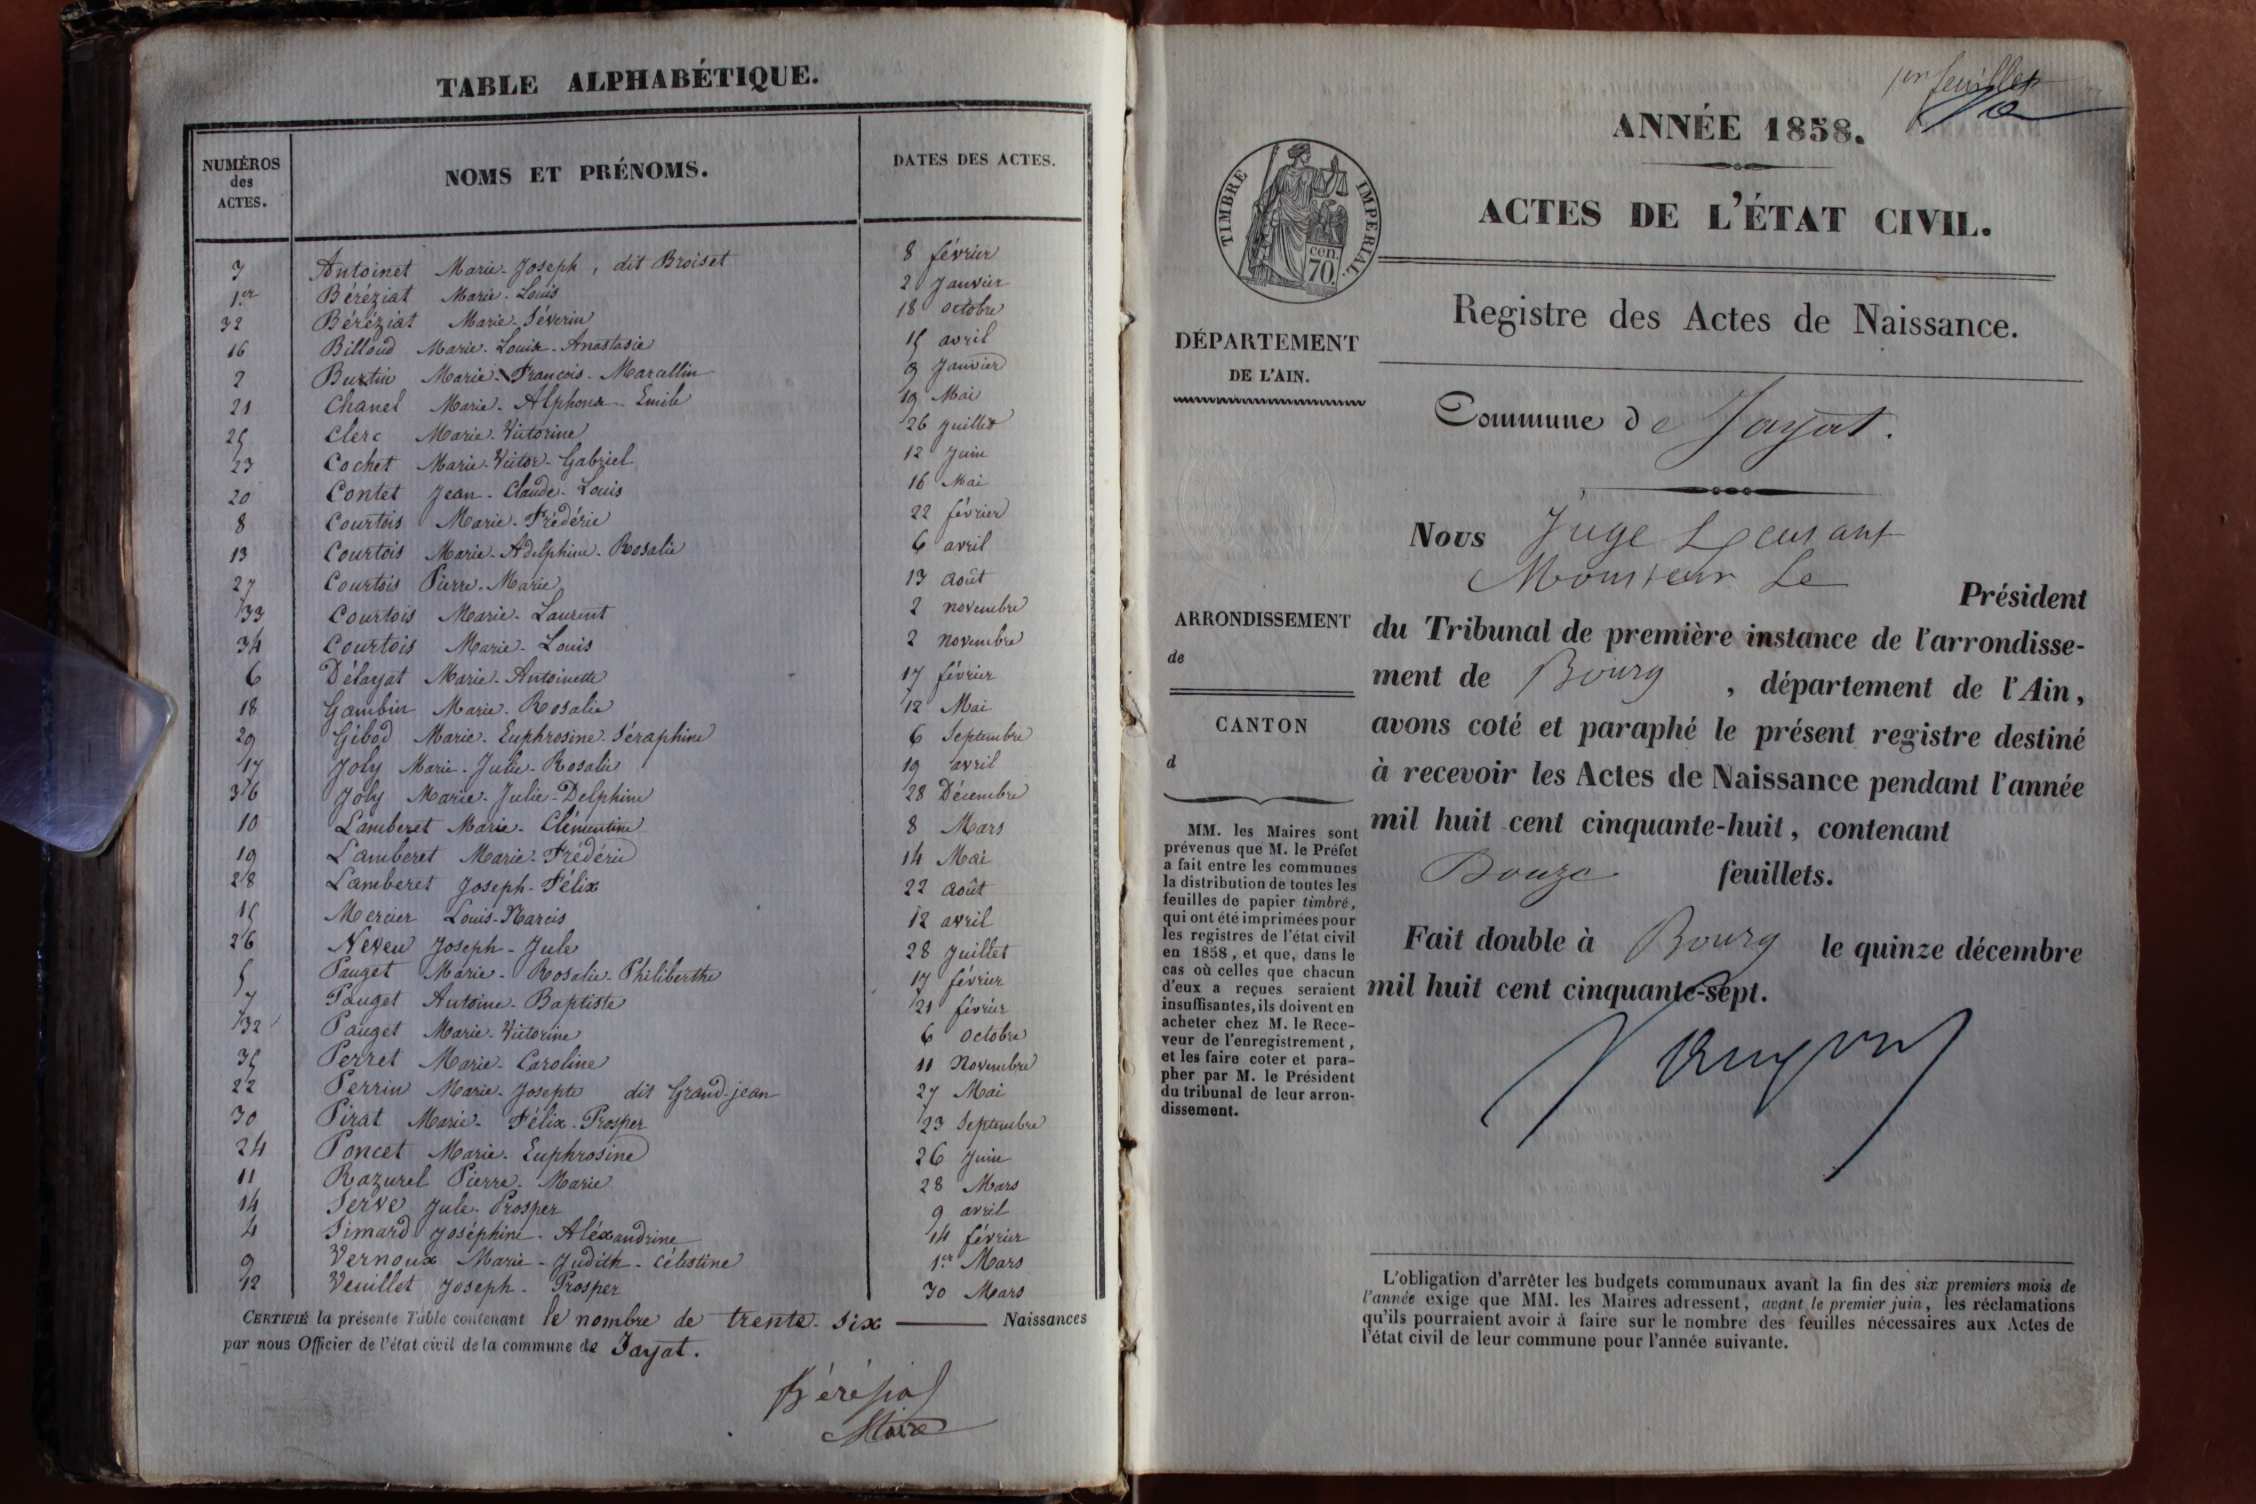 TABLE ALPHABÉTIQUE.
NUMÉROS des ACTES. NOMS ET PRÉNOMS. DATES DES ACTES.
3 Antoinet Marie-Joseph, dit Broiset 8 février
1.er Béréziat Marie-Louis 2 Janvier
32 Béréziat Marie-Séverin 18 octobre
16 Billoud Marie-Louise-Anastasie 15 avril
2 Burtin Marie-François-Marcellin 9 Janvier
21 Chanel Marie-Alphonse-Emile 19 Mai
25 Clerc Marie-Victorine 26 Juillet
23 Cochet Marie-Victor-Gabriel 12 Juin
20 Contet Jean-Claude-Louis 16 Mai
8 Courtois Marie-Frédéric 22 février
13 Courtois Marie-Adelphine-Rosalie 6 avril
27 Courtois Pierre-Marie 13 Août
33 Courtois Marie-Laurent 2 novembre
34 Courtois Marie-Louis 2 novembre
6 Délayat Marie-Antoinette 17 février
18 Gambin Marie-Rosalie 12 Mai
29 Gibod Marie-Euphrosine-Séraphine 6 Septembre
17 Joly Marie-Julie-Rosalie 19 avril
36 Joly Marie-Julie-Delphine 28 Décembre
10 Lamberet Marie-Clémentine 8 Mars
19 Lamberet Marie-Frédéric 14 Mai
28 Lamberet Joseph-Félix 22 Août
15 Mercier Louis-Narcis 12 avril
26 Neveu Joseph-Jule 28 Juillet
5 Pauget Marie-Rosalie-Philiberthe 17 février
7 Pauget Antoine-Baptiste 21 février
32 Pauget Marie-Victorine 6 octobre
35 Perret Marie-Caroline 11 Novembre
22 Perrin Marie-Josepte dit Grand-jean 27 Mai
30 Pirat Marie-Félix-Prosper 23 Septembre
24 Poncet Marie-Euphrosine 26 Juin
11 Razurel Pierre-Marie 28 Mars
14 Serve Jule-Prosper 9 avril
4 Simard Joséphine-Aléxandrine 14 février
9 Vernoux Marie-Judith-Célestine 1er Mars
12 Veuillet Joseph-Prosper 30 Mars
CERTIFIÉ la présente Table contenant le nombre de trente-six Naissances
par nous Officier de l'état civil de la commune de Jayat.
Béréziat
Maire
1er feuillet
ANNÉE 1858.
ACTES DE L'ÉTAT CIVIL.
TIMBRE IMPÉRIAL.
cen.
70.
Registre des Actes de Naissance.
DÉPARTEMENT
DE L'AIN.
Commune de Jayat.
Nous Juge
Monsieur Le
Président
du Tribunal de première instance de l'arrondisse-
ment de Bourg, département de l'Ain,
avons coté et paraphé le présent registre destiné
à recevoir les Actes de Naissance pendant l'année
mil huit cent cinquante-huit, contenant
Douze feuillets.
Fait double à Bourg le quinze décembre
mil huit cent cinquante-sept.
ARRONDISSEMENT
de
CANTON
d
MM. les Maires sont
prévenus que M. le Préfet
a fait entre les communes
la distribution de toutes les
feuilles de papier timbré,
qui ont été imprimées pour
les registres de l'état civil
en 1858, et que, dans le
cas où celles que chacun
d'eux a reçues seraient
insuffisantes, ils doivent en
acheter chez M. le Rece-
veur de l'enregistrement,
et les faire coter et para-
pher par M. le Président
du tribunal de leur arron-
dissement.
L'obligation d'arrêter les budgets communaux avant la fin des six premiers mois de
l'année exige que MM. les Maires adressent, avant le premier juin, les réclamations
qu'ils pourraient avoir à faire sur le nombre des feuilles nécessaires aux Actes de
l'état civil de leur commune pour l'année suivante.